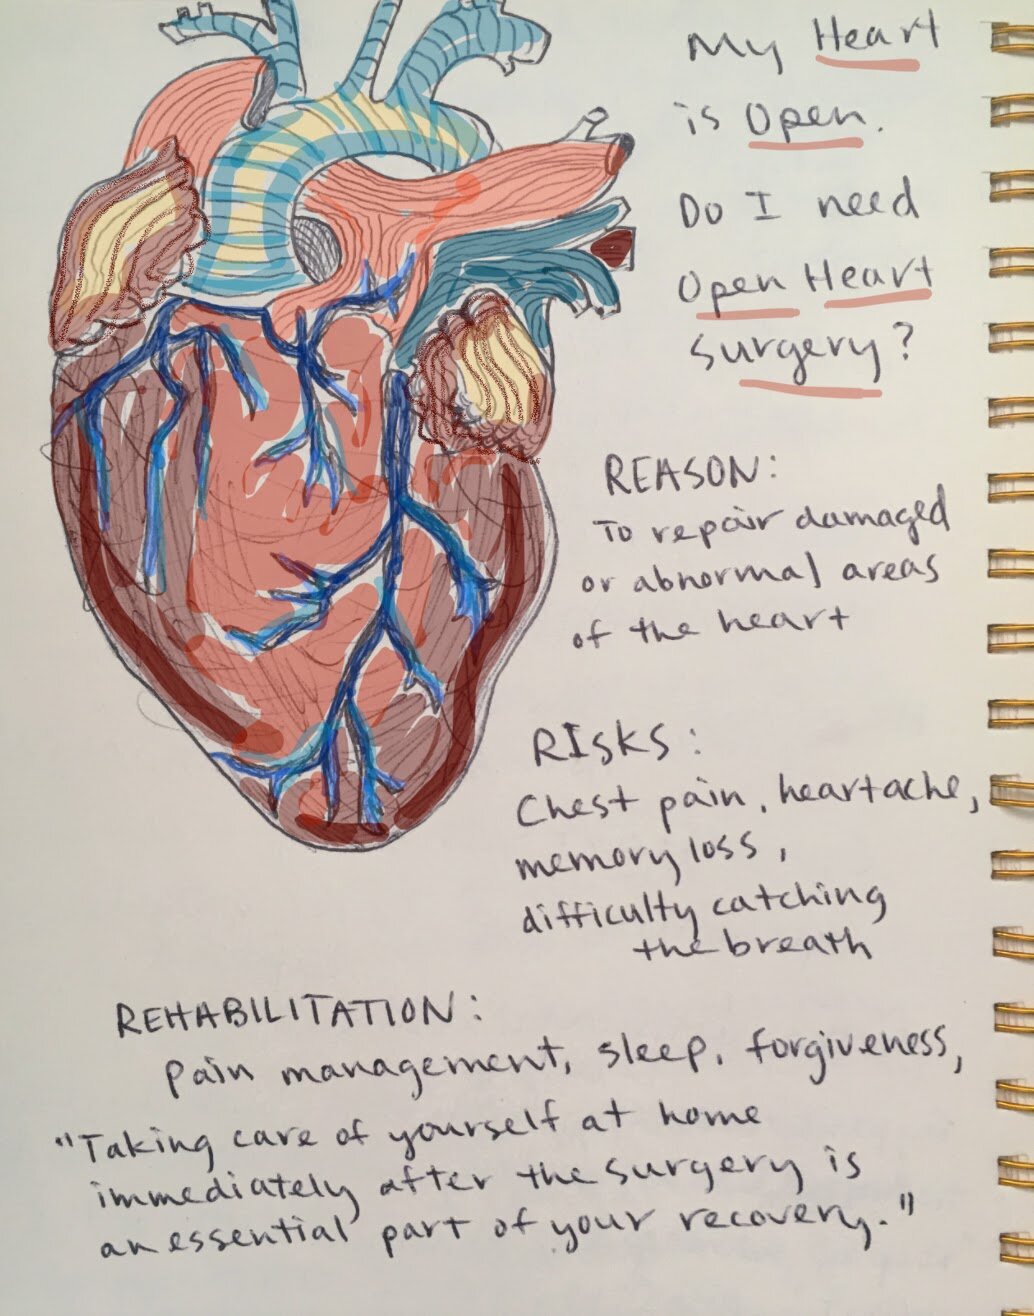 My Heart
is Open.
Do I need
Open Heart
surgery?
REASON:
To repair damaged
or abnormal areas
of the heart
RISKS:
Chest pain, heartache,
memory loss,
difficulty catching
the breath
REHABILITATION:
Pain management, sleep, forgiveness,
"Taking care of yourself at home
immediately after the surgery is
an essential part of your recovery."